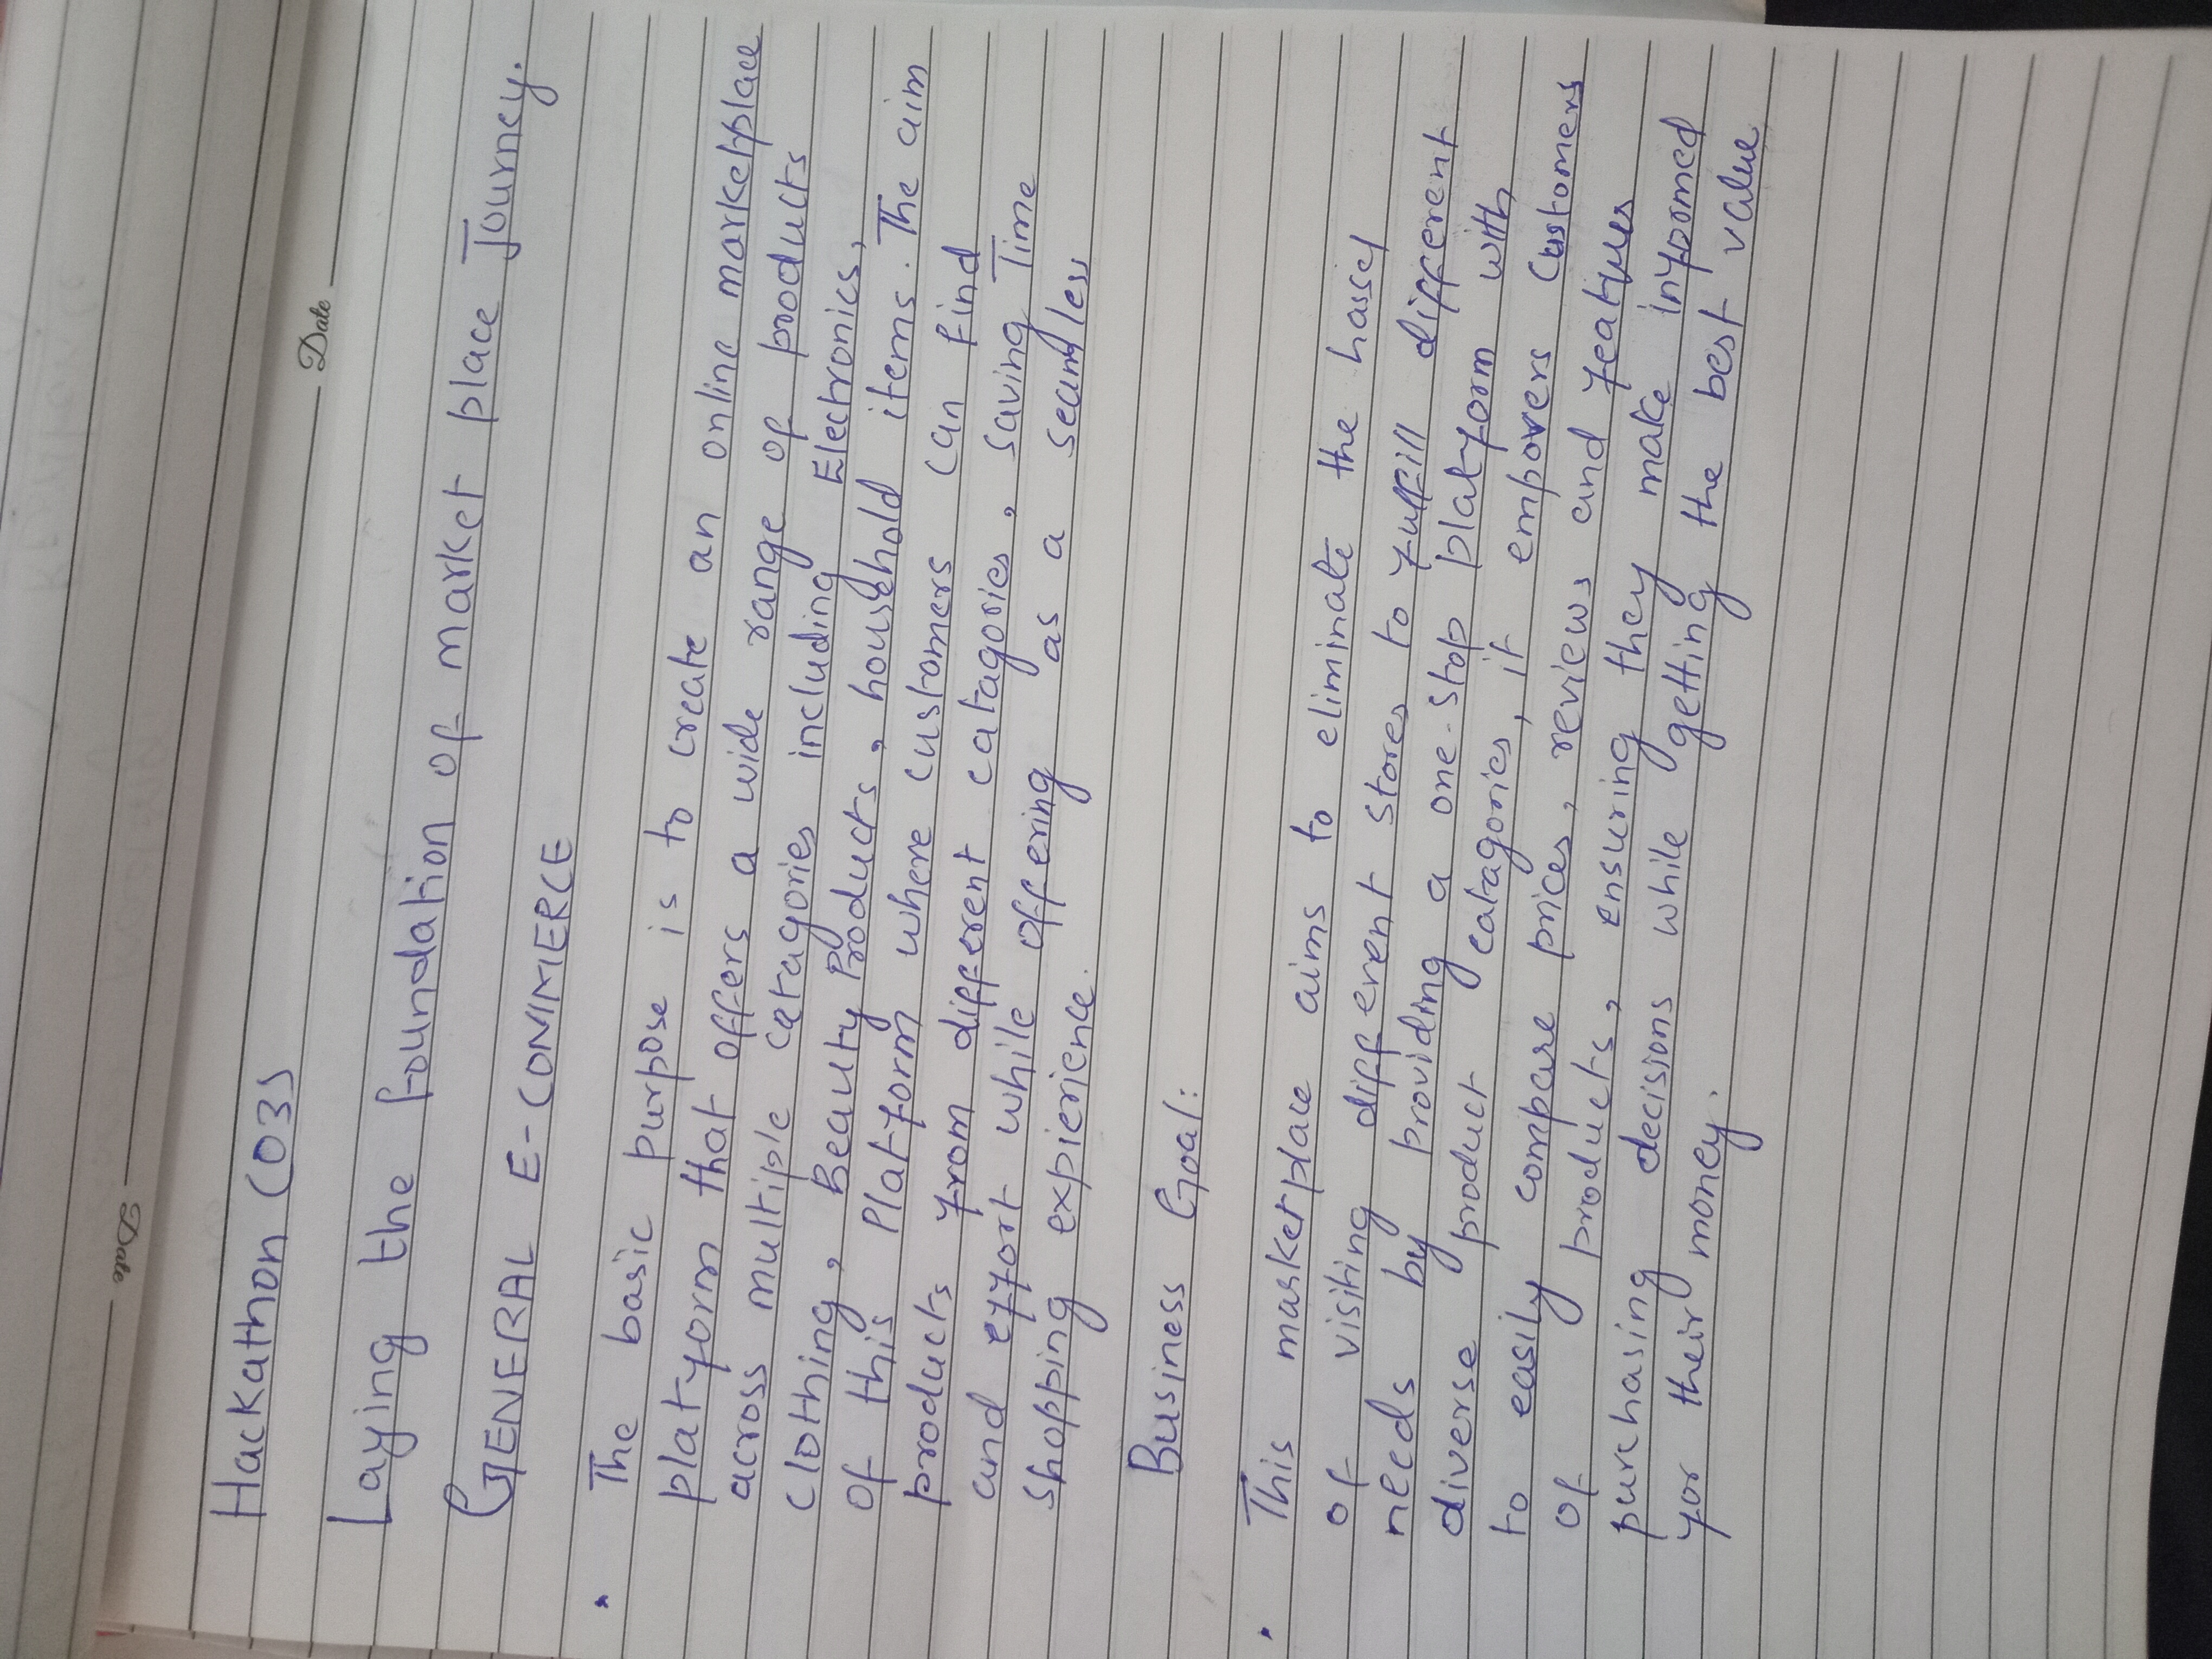 Date
Hackathon (03)
Date
Laying the foundation of market place Journey.
GENERAL E-COMMERCE
The basic purpose is to create an online marketplace
platform that offers a wide range of products
across multiple catagories including Electronics,
Clothing, Beauty Products, household items. The aim
of this Platform where customers can find
products from different catagories, saving Time
and effort while offering as a seamless
Shopping expierience.
Business Goal:
This marketplace aims to eliminate the hassel
of visiting different stores to fulfill different
needs by providing a one-stop platform with
diverse product catagories, it empowers Customers
to easily compare prices, reviews and features
of products, ensuring they make informed
purchasing decisions while getting the best value
for their money.